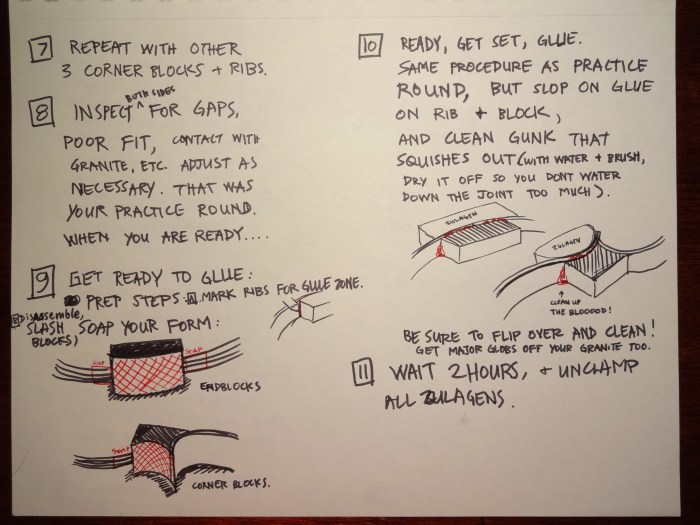 7 REPEAT WITH OTHER
3 CORNER BLOCKS + RIBS.
8 INSPECT ^BOTH SIDES FOR GAPS,
POOR FIT, CONTACT WITH
GRANITE, ETC. ADJUST AS
NECESSARY. THAT WAS
YOUR PRACTICE ROUND.
WHEN YOU ARE READY....
9 GET READY TO GLUE:
PREP STEPS: A MARK RIBS FOR GLUE ZONE.
B Disassemble,
SLASH SOAP YOUR FORM:
BLOCKS)
SOAP
SOAP
ENDBLOCKS
SOAP
CORNER BLOCKS.
10 READY, GET SET, GLUE.
SAME PROCEDURE AS PRACTICE
ROUND, BUT SLOP ON GLUE
ON RIB + BLOCK,
AND CLEAN GUNK THAT
SQUISHES OUT (WITH WATER + BRUSH,
DRY IT OFF SO YOU DONT WATER
DOWN THE JOINT TOO MUCH).
ZULAGEN
ZULAGEN
CLEAN UP
THE BLOOOOD!
BE SURE TO FLIP OVER AND CLEAN!
GET MAJOR GLOBS OFF YOUR GRANITE TOO.
11 WAIT 2 HOURS, + UNCLAMP
ALL ZULAGENS.